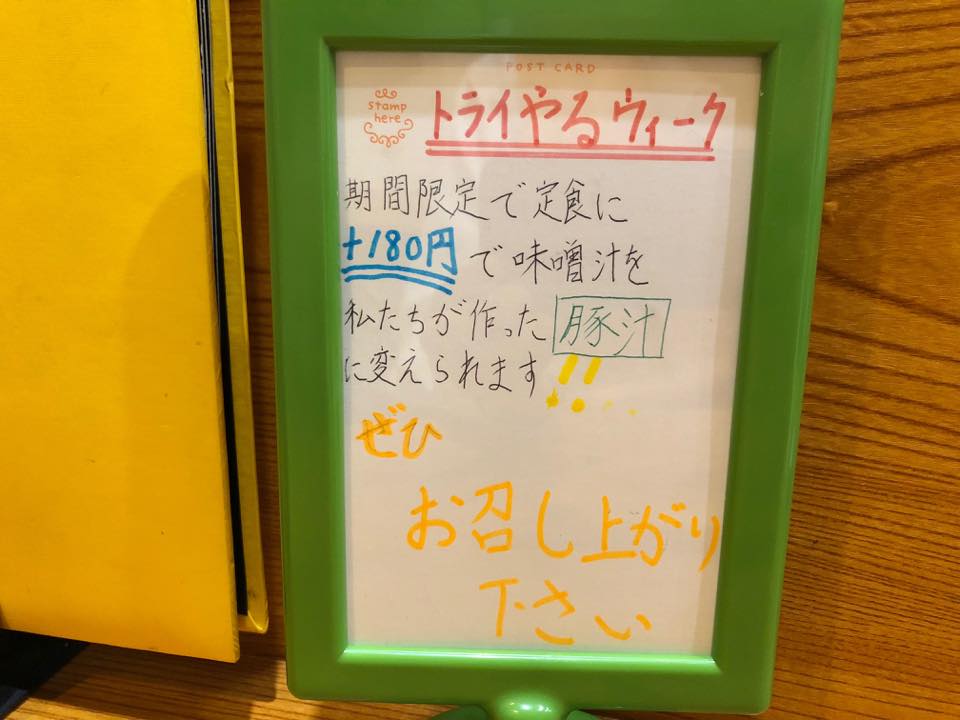 POST CARD
stamp
here
トライやるウィーク
期間限定で定食に
+180円で味噌汁を
私たちが作った豚汁
に変えられます!!
ぜひ
お召し上がり
下さい